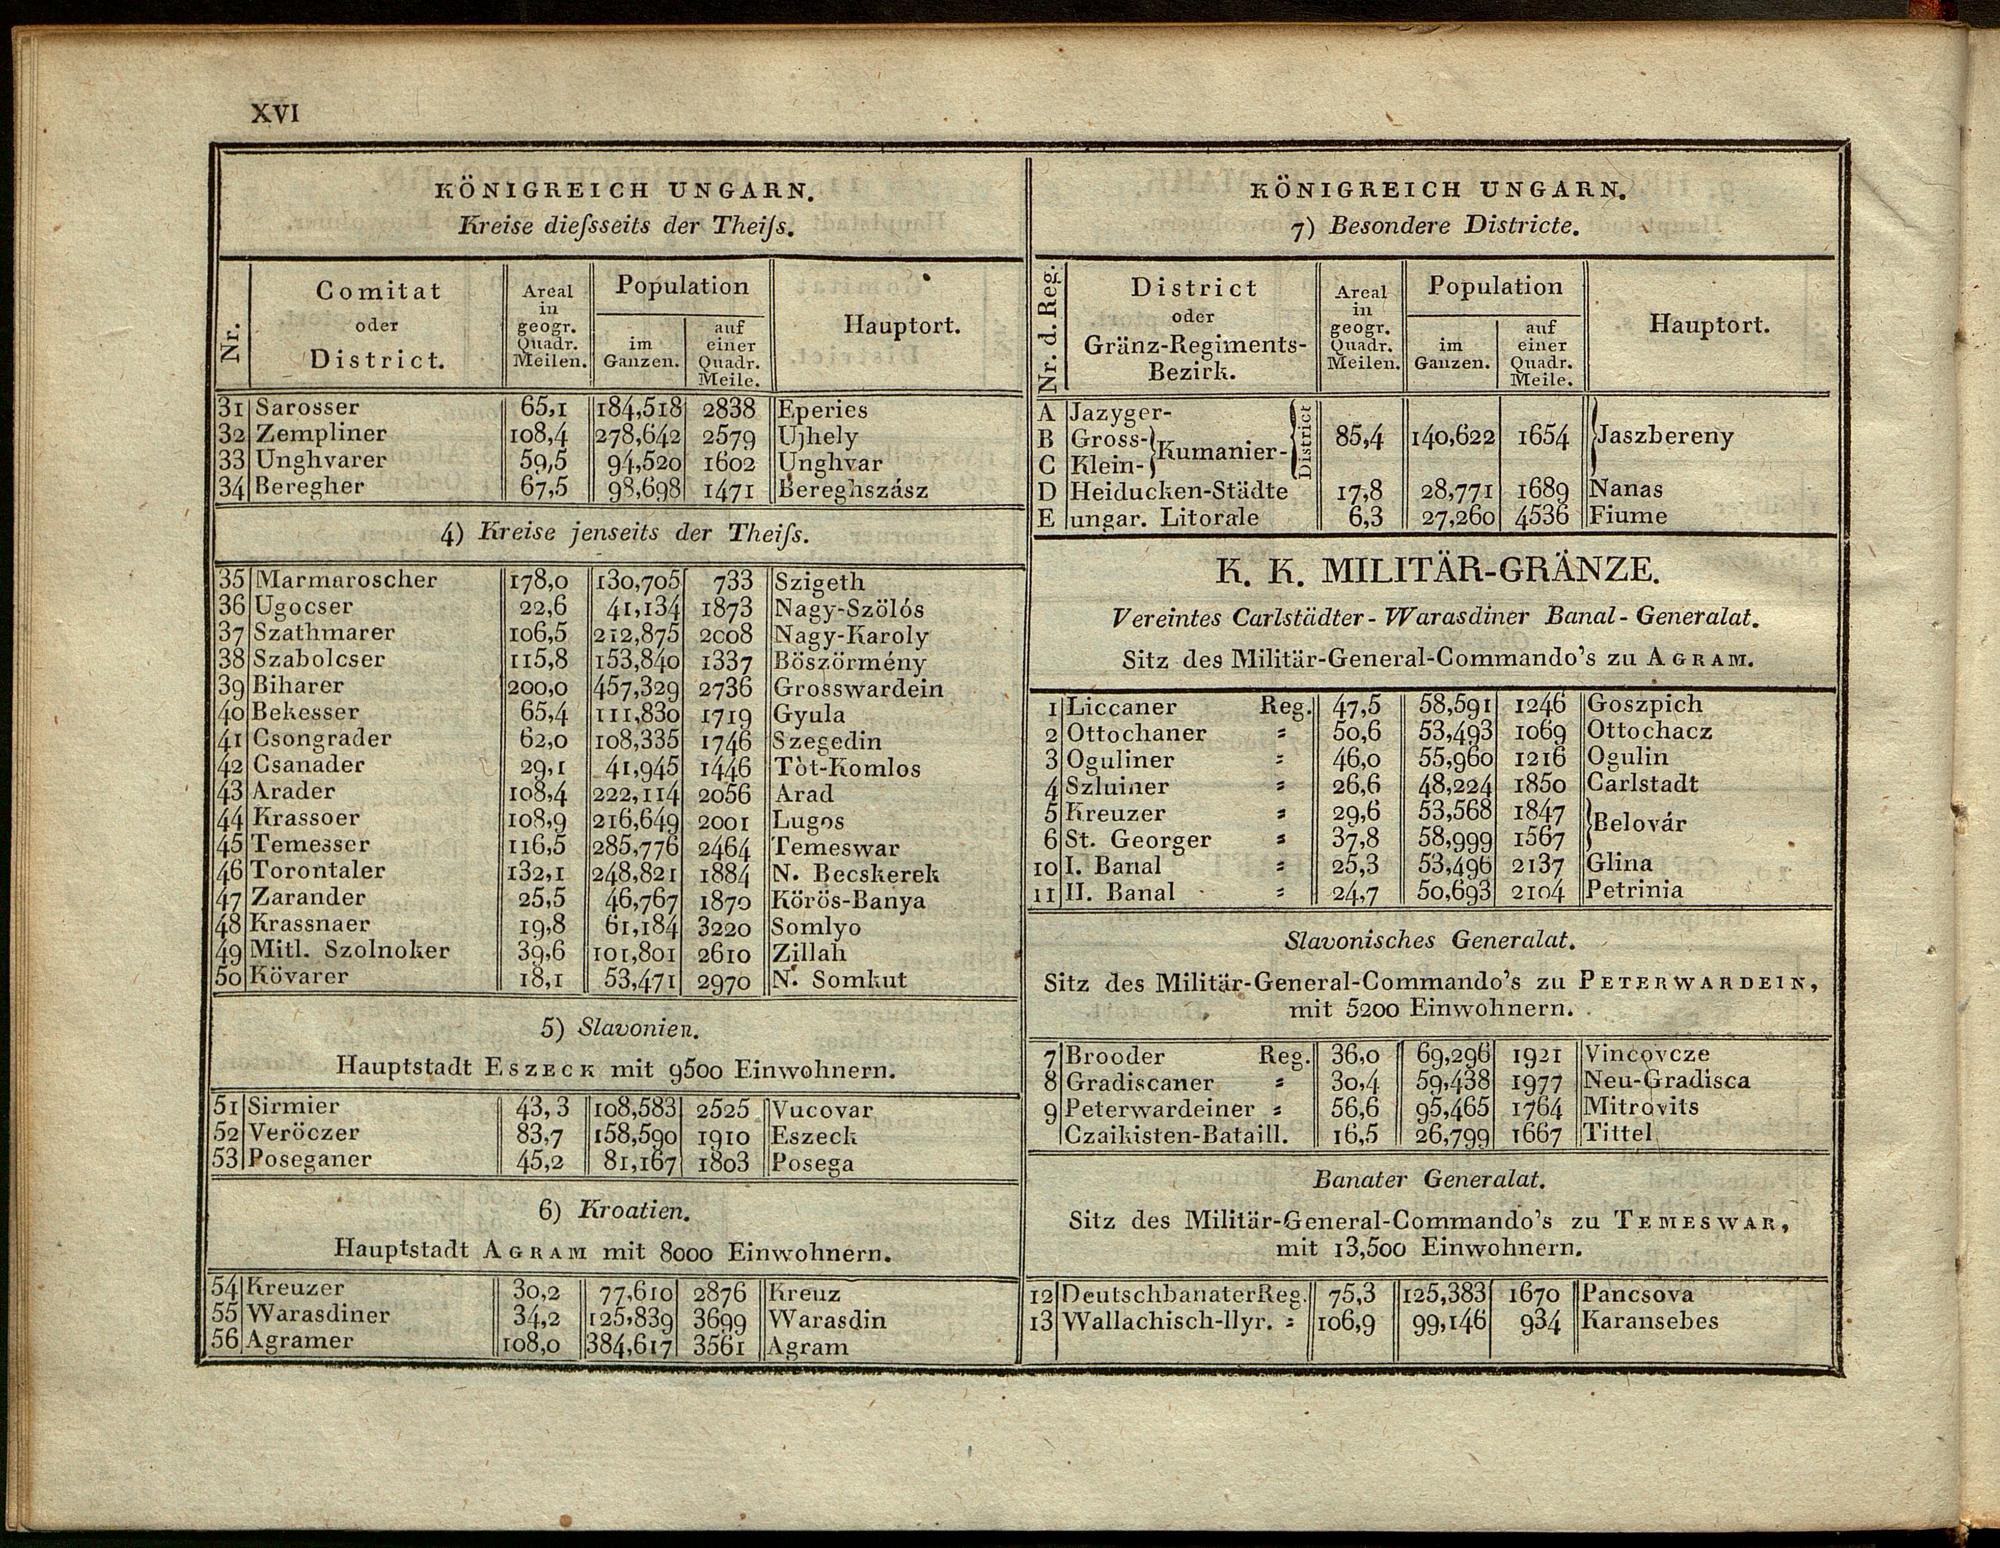 XVI
KÖNIGREICH UNGARN.
Kreise dieſsseits der Theiſs.
Nr.
Comitat
oder
District.
Areal
in
geogr.
Quadr.
Meilen.
Population
im
Ganzen.
auf
einer
Quadr.
Meile.
Hauptort.
31 Sarosser 65,1 184,518 2838 Eperies
32 Zempliner 108,4 278,642 2579 Ujhely
33 Unghvarer 59,5 94,520 1602 Unghvar
34 Beregher 67,5 98,698 1471 Bereghszász
4) Kreise jenseits der Theiſs.
35 Marmaroscher 178,0 130,705 733 Szigeth
36 Ugocser 22,6 41,134 1873 Nagy-Szölós
37 Szathmarer 106,5 212,875 2008 Nagy-Karoly
38 Szabolcser 115,8 153,840 1337 Böszörmény
39 Biharer 200,0 457,329 2736 Grosswardein
40 Bekesser 65,4 111,830 1719 Gyula
41 Csongrader 62,0 108,335 1746 Szegedin
42 Csanader 29,1 41,945 1446 Tòt-Komlos
43 Arader 108,4 222,114 2056 Arad
44 Krassoer 108,9 216,649 2001 Lugos
45 Temesser 116,5 285,776 2464 Temeswar
46 Torontaler 132,1 248,821 1884 N. Becskerek
47 Zarander 25,5 46,767 1870 Körös-Banya
48 Krassnaer 19,8 61,184 3220 Somlyo
49 Mitl. Szolnoker 39,6 101,801 2610 Zillah
50 Kövarer 18,1 53,471 2970 N. Somkut
5) Slavonien.
Hauptstadt ESZECK mit 9500 Einwohnern.
51 Sirmier 43,3 108,583 2525 Vucovar
52 Veröczer 83,7 158,590 1910 Eszeck
53 Poseganer 45,2 81,167 1803 Posega
6) Kroatien.
Hauptstadt AGRAM mit 8000 Einwohnern.
54 Kreuzer 30,2 77,610 2876 Kreuz
55 Warasdiner 34,2 125,839 3699 Warasdin
56 Agramer 108,0 384,617 3561 Agram
KÖNIGREICH UNGARN.
7) Besondere Districte.
Nr. d. Reg.
District
oder
Gränz-Regiments-
Bezirk.
Areal
in
geogr.
Quadr.
Meilen.
Population
im
Ganzen.
auf
einer
Quadr.
Meile.
Hauptort.
A Jazyger-
B Gross- Kumanier- District 85,4 140,622 1654 Jaszbereny
C Klein-
D Heiducken-Städte 17,8 28,771 1689 Nanas
E ungar. Litorale 6,3 27,260 4536 Fiume
K. K. MILITÄR-GRÄNZE.
Vereintes Carlstädter-Warasdiner Banal-Generalat.
Sitz des Militär-General-Commando's zu AGRAM.
1 Liccaner Reg. 47,5 58,591 1246 Goszpich
2 Ottochaner = 50,6 53,493 1069 Ottochacz
3 Oguliner = 46,0 55,960 1216 Ogulin
4 Szluiner = 26,6 48,224 1850 Carlstadt
5 Kreuzer = 29,6 53,568 1847 Belovár
6 St. Georger = 37,8 58,999 1567
10 I. Banal = 25,3 53,496 2137 Glina
11 II. Banal = 24,7 50,693 2104 Petrinia
Slavonisches Generalat.
Sitz des Militär-General-Commando's zu PETERWARDEIN,
mit 5200 Einwohnern.
7 Brooder Reg. 36,0 69,296 1921 Vincovcze
8 Gradiscaner = 30,4 59,438 1977 Neu-Gradisca
9 Peterwardeiner = 56,6 95,465 1764 Mitrovits
Czaikisten-Bataill. 16,5 26,799 1667 Tittel
Banater Generalat.
Sitz des Militär-General-Commando's zu TEMESWAR,
mit 13,500 Einwohnern.
12 Deutschbanater Reg. 75,3 125,383 1670 Pancsova
13 Wallachisch-Ilyr. = 106,9 99,146 934 Karansebes